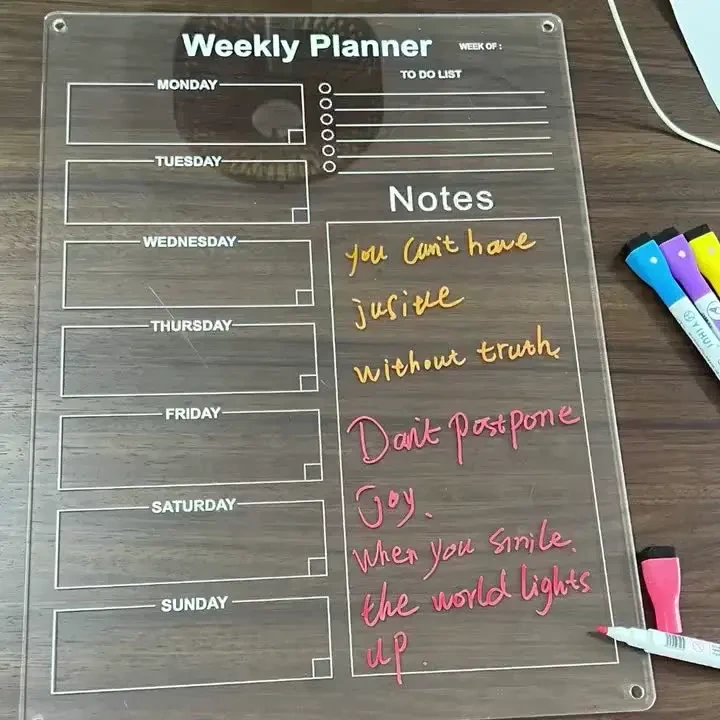 Weekly Planner
WEEK OF :
MONDAY
TO DO LIST
TUESDAY
WEDNESDAY
THURSDAY
FRIDAY
SATURDAY
SUNDAY
Notes
you can't have
jusitle
without truth
Don't postpone
Joy.
When you smile.
the world lights
up.